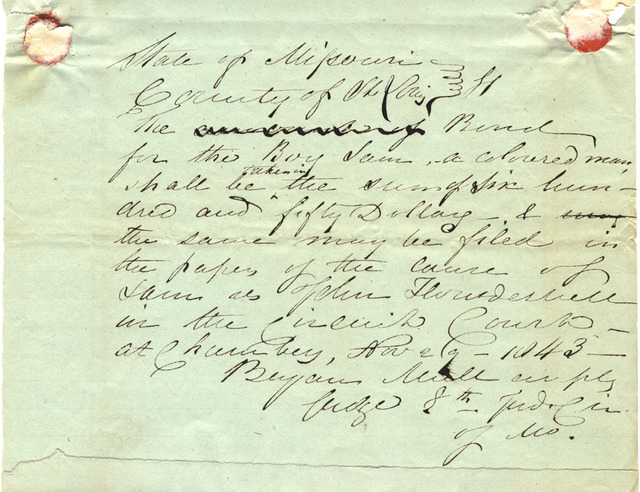 State of Missouri
County of St Louis
The Bond
for the Boy Sam, a coloured man,
shall be taken in the sum of six hun-
dred and fifty Dollars - &
the same may be filed in
the papers of the cause of
Sam vs John
in the Circuit Court -
at Chambers, Nov 29 - 1843 -
Bryan Mullanphy
Judge 8th Jud. Cir.
of Mo.